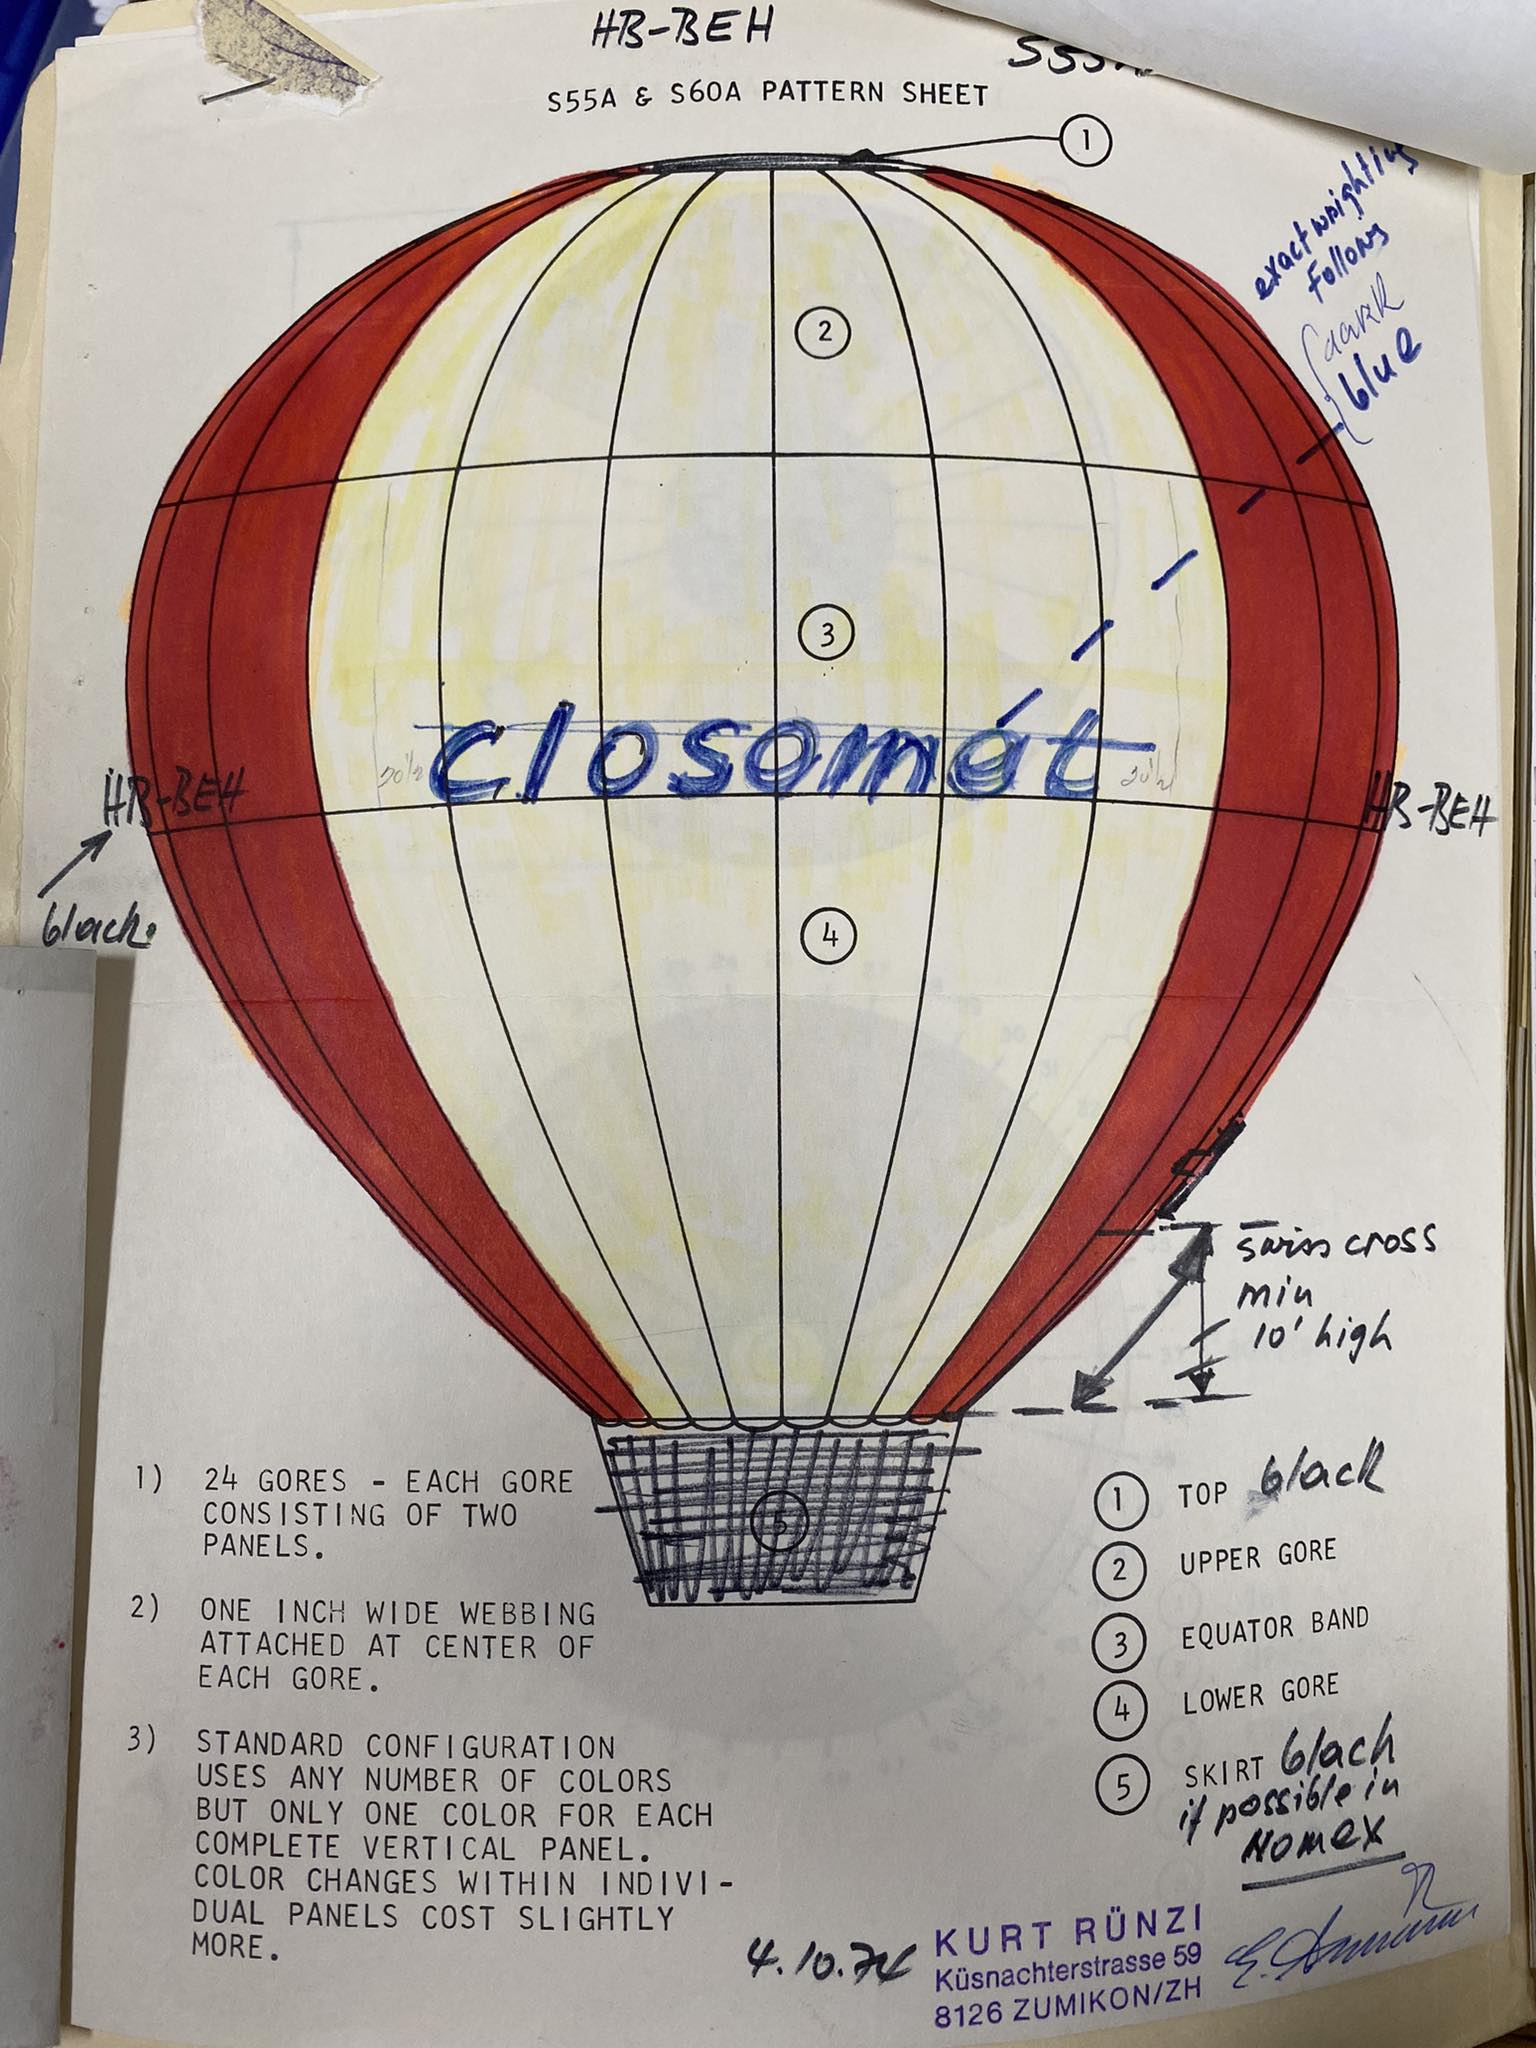 HB-BEH
S55A & S60A PATTERN SHEET
1
exact wrighting
follows
dark
blue
2
3
closomát
20½
20½
HB-BEH
HB-BEH
black.
4
swiss cross
min
10' high
5
1) 24 GORES - EACH GORE
CONSISTING OF TWO
PANELS.
2) ONE INCH WIDE WEBBING
ATTACHED AT CENTER OF
EACH GORE.
3) STANDARD CONFIGURATION
USES ANY NUMBER OF COLORS
BUT ONLY ONE COLOR FOR EACH
COMPLETE VERTICAL PANEL.
COLOR CHANGES WITHIN INDIVI-
DUAL PANELS COST SLIGHTLY
MORE.
1 TOP black
2 UPPER GORE
3 EQUATOR BAND
4 LOWER GORE
5 SKIRT black
if possible in
Nomex
4.10.74
KURT RÜNZI
Küsnachterstrasse 59
8126 ZUMIKON/ZH